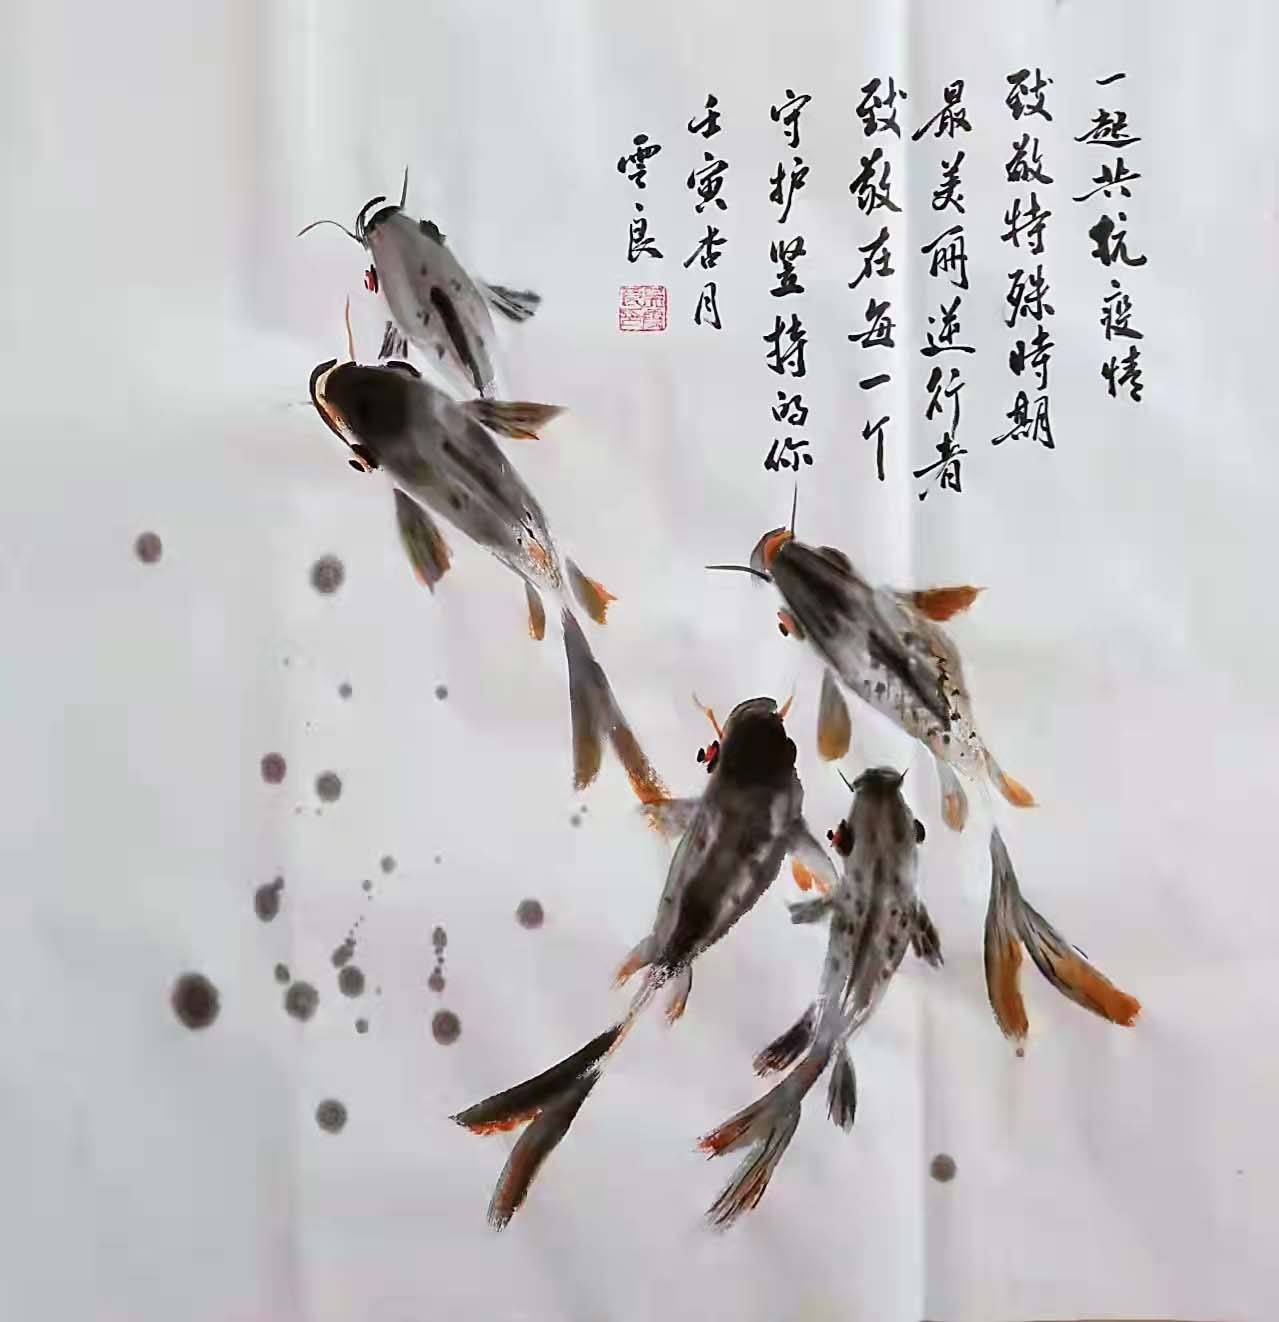 一起共抗疫情
致敬特殊時期
最美丽逆行者
致敬在每一个
守护坚持的你
壬寅杏月
雲良